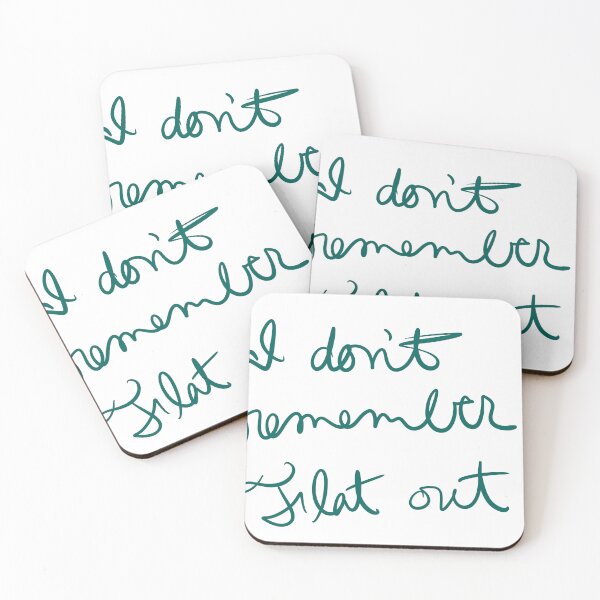 I don't
remember
I don't
remember
Flat out
I don't
remember
Flat
I don't
remember
Flat out